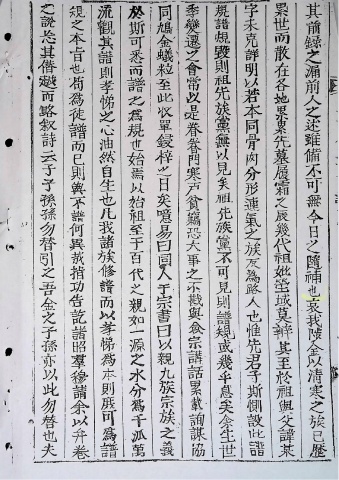 其前錄之漏前人之述雖備不可無今日之隨補也哀我陜金以清寒之族已歷
累世而散在各地累累先墓履霜之辰幾代祖妣塋域莫辨甚至於祖與父諱某
字未克詳明以若本同骨肉分形連氣之族反為路人也惟先君子斯惻設此譜
規譜規旣則祖先族黨無以見矣祖先族黨不可見則譜規或幾乎息矣余生世
季變遷之會常以是眷眷門寒戶貧竊恐大事之不戡與僉宗講話累載詢謀協
同鳩金蟻粒至此收單鋟梓之日矣噫易曰同人于宗書曰以親九族宗族之義
於斯可悉而譜之為規也始焉以始祖至于百代之親如一源之水分為千派萬
流觀其譜則孝悌之心油然自生也凡我諸族修譜而以孝悌為本則庶可為譜
規之本旨也苟為徒譜而已則與不譜何異哉招功告訖諸昭羣穆請余以弁卷
之語忘其僭越而略叙詩云子子孫孫勿替引之吾金之子孫亦以此勿替也夫